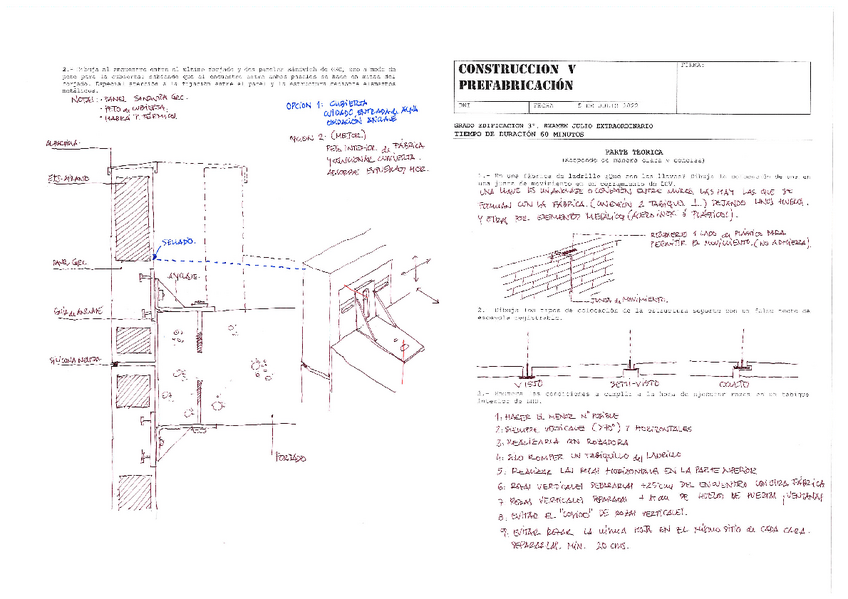 2.- Dibuja el encuentro entre el último forjado y dos paneles sándwich de GRC, uno a modo de
peto para la cubierta, sabiendo que el encuentro entre ambos paneles se hace en mitad del
forjado. Especial atención a la fijación entre el panel y la estructura mediante elementos
metálicos.
NOTAS: · PANEL SANDWICH GRC.
· PETO DE CUBIERTA.
OPCIÓN 1: CUBIERTA
CUIDADO, ENTRADA DE AGUA
OXIDACIÓN ANCLAJE
OPCIÓN 2: (MEJOR)
PETO INTERIOR de FÁBRICA
Y FUNCIONAL CUBIERTA.
ALBARDILLA.
SELLADO.
PANEL GRC.
ANCLAJE.
GUÍA de ANCLAJE
SILICONA NEUTRA
FORJADO
CONSTRUCCION V
PREFABRICACIÓN
FIRMA:
DNI
FECHA
5 DE JULIO 2022
GRADO EDIFICACION 3º. EXAMEN JULIO EXTRAORDINARIO
TIEMPO DE DURACIÓN 60 MINUTOS
PARTE TEORICA
(Responde de manera clara y concisa)
1.- En una fábrica de ladrillo ¿Qué son las llaves? Dibuja la colocación de una en
una junta de movimiento en un cerramiento de LCV.
UNA LLAVE ES UN ANCLAJE O CONEXIÓN ENTRE MUROS, LAS HAY LAS QUE SE
FORMAN CON LA FÁBRICA. (CONEXIÓN 2 TABIQUES ⊥) DEJANDO UNOS HUECOS.
Y OTRAS POR ELEMENTO METÁLICO (ACERO INOX Ó PLÁSTICOS).
1 LADO de PLÁSTICO PARA
PERMITIR EL MOVIMIENTO. (NO ADHERIRA)
JUNTA de MOVIMIENTO.
2. Dibuja los tipos de colocación de la estructura soporte con un falso techo de
escayola registrable.
VISTO
SEMI-VISTO
OCULTO
3.- Enumera las condiciones a cumplir a la hora de ejecutar rozas en un tabique
interior de LHD.
1: HACER EL MENOR Nº POSIBLE
2: SIEMPRE VERTICALES (>70º) Y HORIZONTALES
3: REALIZARLA CON ROZADORA
4: SOLO ROMPER UN TABIQUILLO del LADRILLO
5. REALIZAR LAS ROZAS HORIZONTALES EN LA PARTE SUPERIOR
6: ROZAS VERTICALES SEPARARLAS DEL ENCUENTRO CON OTRA FÁBRICA
7. ROZAS VERTICALES SEPARADAS DE HUECOS DE PUERTAS, VENTANAS
8. EVITAR EL "COSIDO" DE ROZAS VERTICALES.
9. EVITAR REALIZAR LA MISMA ROZA EN EL MISMO SITIO de CADA CARA.
SEPARARLAS. MÍN. 20 CMS.